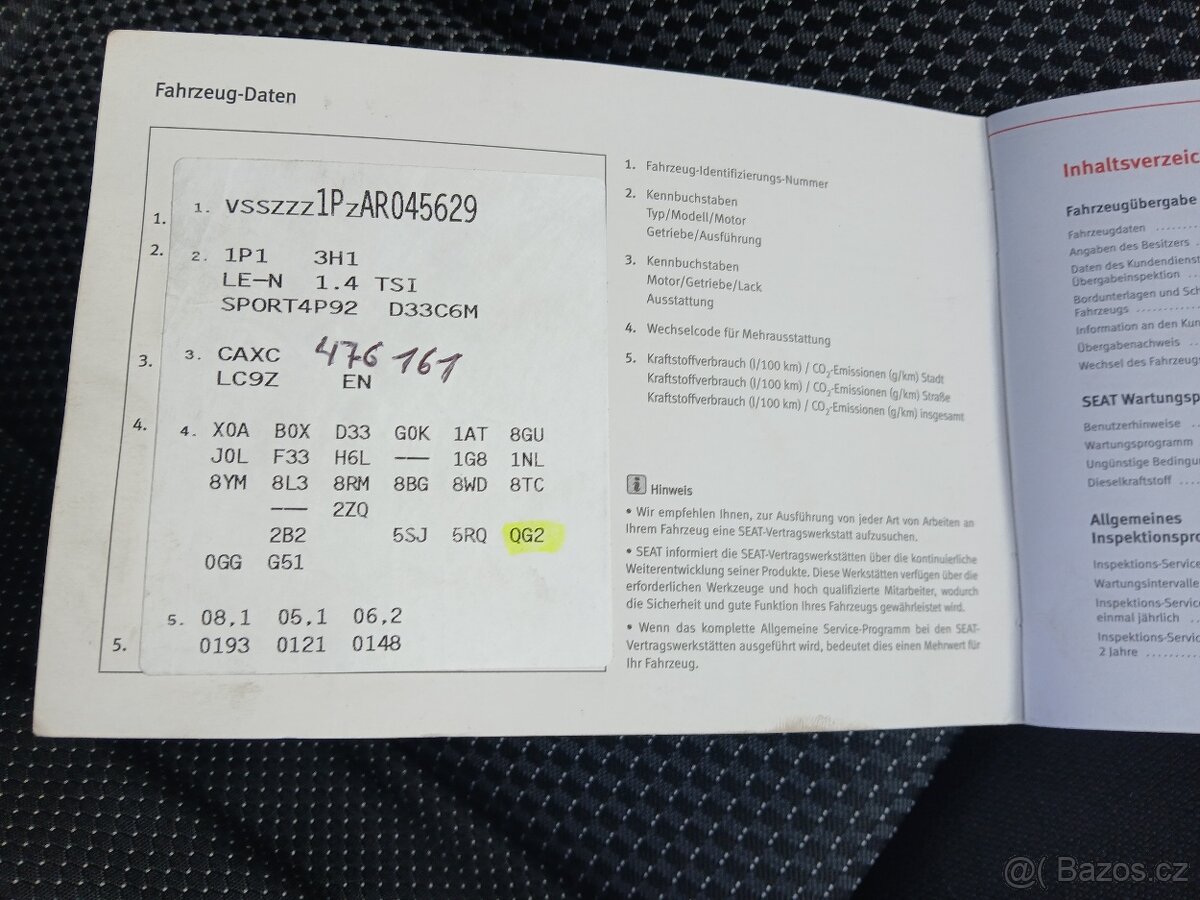 Fahrzeug-Daten
1. 1. VSSZZZ1PZAR045629
2. 2. 1P1 3H1
LE-N 1.4 TSI
SPORT4P92 D33C6M
3. 3. CAXC 476 161
LC9Z EN
4. 4. X0A B0X D33 G0K 1AT 8GU
J0L F33 H6L --- 1G8 1NL
8YM 8L3 8RM 8BG 8WD 8TC
--- 2ZQ
2B2 5SJ 5RQ QG2
0GG G51
5. 08,1 05,1 06,2
5. 0193 0121 0148
1. Fahrzeug-Identifizierungs-Nummer
2. Kennbuchstaben
Typ/Modell/Motor
Getriebe/Ausführung
3. Kennbuchstaben
Motor/Getriebe/Lack
Ausstattung
4. Wechselcode für Mehrausstattung
5. Kraftstoffverbrauch (l/100 km) / CO₂-Emissionen (g/km) Stadt
Kraftstoffverbrauch (l/100 km) / CO₂-Emissionen (g/km) Straße
Kraftstoffverbrauch (l/100 km) / CO₂-Emissionen (g/km) insgesamt
i Hinweis
• Wir empfehlen Ihnen, zur Ausführung von jeder Art von Arbeiten an
Ihrem Fahrzeug eine SEAT-Vertragswerkstatt aufzusuchen.
• SEAT informiert die SEAT-Vertragswerkstätten über die kontinuierliche
Weiterentwicklung seiner Produkte. Diese Werkstätten verfügen über die
erforderlichen Werkzeuge und hoch qualifizierte Mitarbeiter, wodurch
die Sicherheit und gute Funktion Ihres Fahrzeugs gewährleistet wird.
• Wenn das komplette Allgemeine Service-Programm bei den SEAT-
Vertragswerkstätten ausgeführt wird, bedeutet dies einen Mehrwert für
Ihr Fahrzeug.
Inhaltsverzeic
Fahrzeugübergabe
Fahrzeugdaten
Angaben des Besitzers
Daten des Kundendienst
Übergabeinspektion
Bordunterlagen und Sch
Fahrzeugs
Information an den Kun
Übergabenachweis
Wechsel des Fahrzeug
SEAT Wartungsp
Benutzerhinweise
Wartungsprogramm
Ungünstige Bedingu
Dieselkraftstoff
Allgemeines
Inspektionspro
Inspektions-Service
Wartungsintervalle
Inspektions-Servic
einmal jährlich
Inspektions-Servic
2 Jahre
@( Bazos.cz